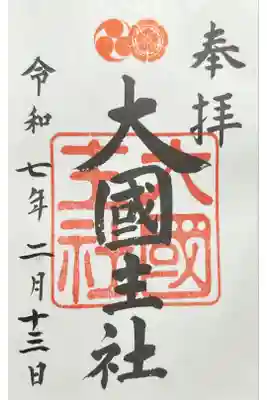 奉拝
大國主社
大國主社
令和七年二月十三日